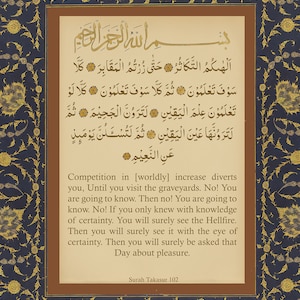 بسم الله الرحمن الرحيم
أَلْهَىٰكُمُ التَّكَاثُرُ ۝ حَتَّىٰ زُرْتُمُ الْمَقَابِرَ ۝ كَلَّا
سَوْفَ تَعْلَمُونَ ۝ ثُمَّ كَلَّا سَوْفَ تَعْلَمُونَ ۝ كَلَّا لَوْ
تَعْلَمُونَ عِلْمَ الْيَقِينِ ۝ لَتَرَوُنَّ الْجَحِيمَ ۝ ثُمَّ
لَتَرَوُنَّهَا عَيْنَ الْيَقِينِ ۝ ثُمَّ لَتُسْأَلُنَّ يَوْمَئِذٍ
عَنِ النَّعِيمِ ۝
Competition in [worldly] increase diverts
you, Until you visit the graveyards. No! You
are going to know. Then no! You are going to
know. No! If you only knew with knowledge
of certainty. You will surely see the Hellfire.
Then you will surely see it with the eye of
certainty. Then you will surely be asked that
Day about pleasure.
Surah Takasur 102